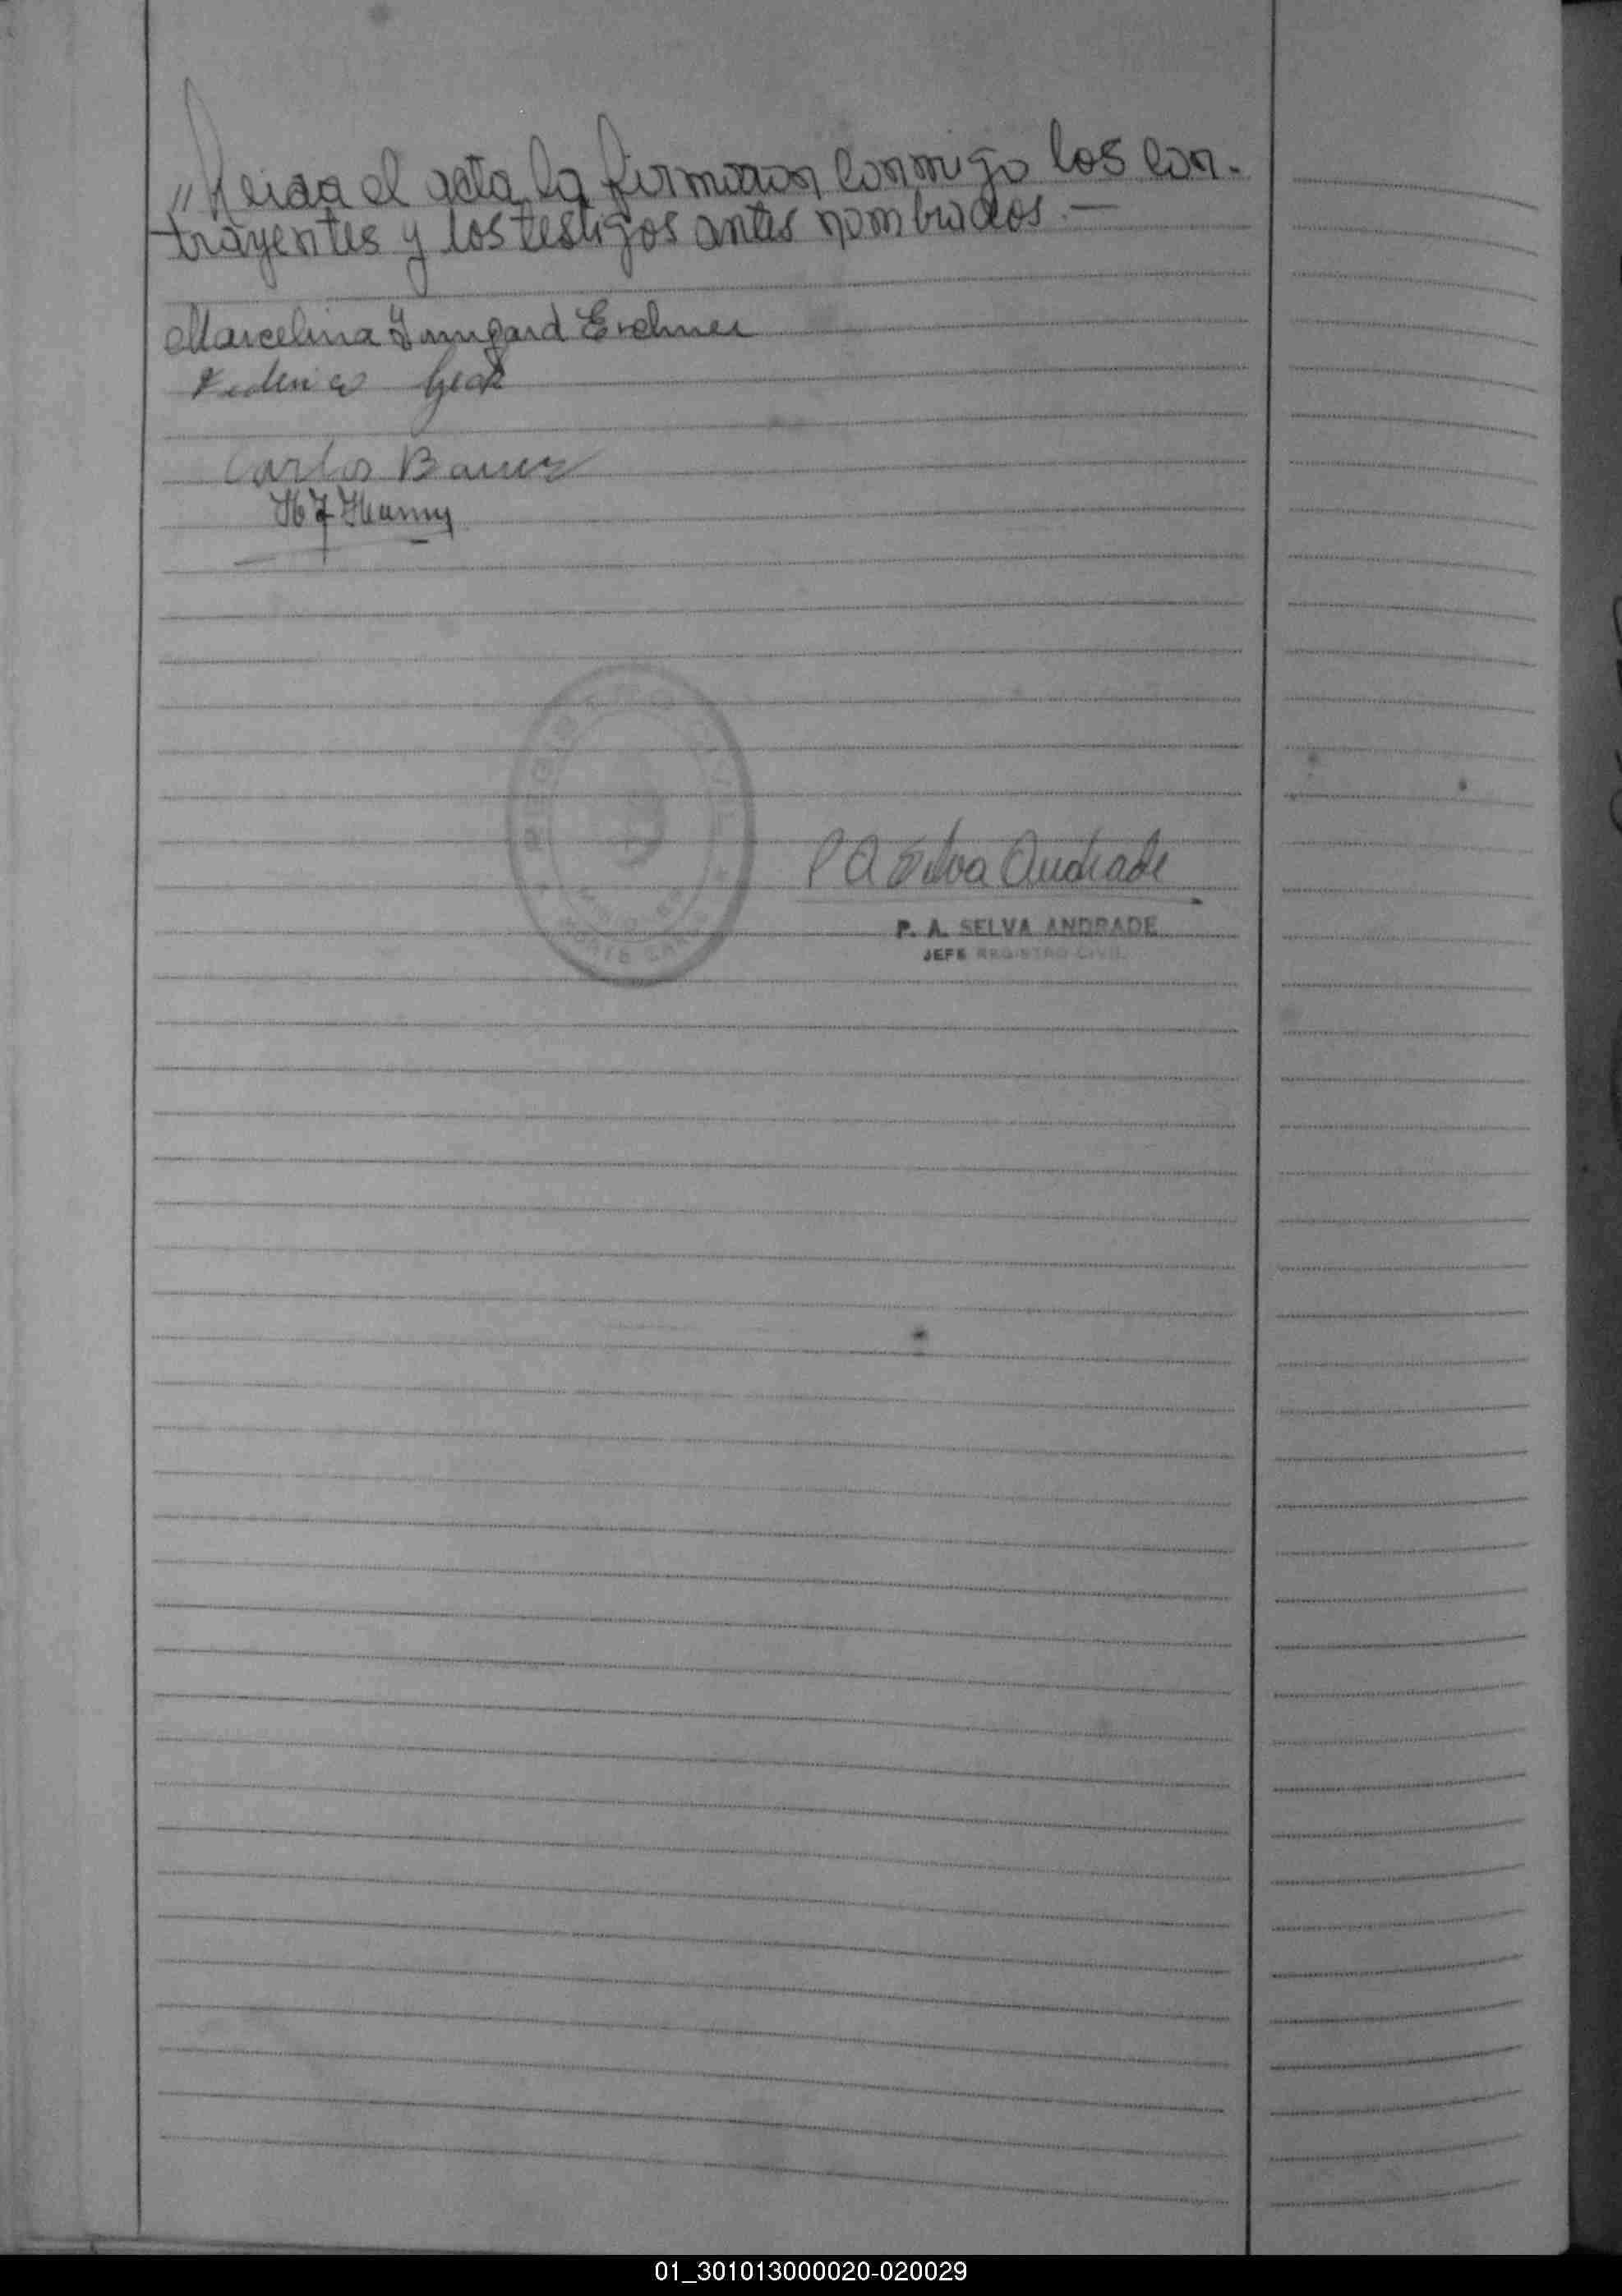 " Leida el acta, la firmaron conmigo los con-
trayentes y los testigos antes nombrados. —
Marcelina Irmgard
Federico
Carlos Bauer
H J
REGISTRO CIVIL
P A Selva Andrade
P. A. SELVA ANDRADE
JEFE REGISTRO CIVIL
01_301013000020-020029